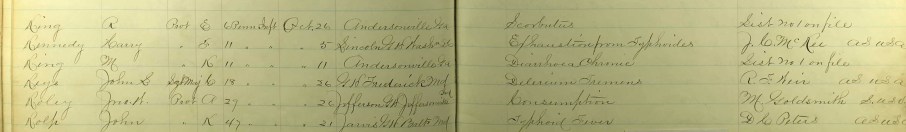 King R Pvt E 6 Penn Inft Oct 26 Andersonville Ga Scorbutus List not on file
Kennedy Harry " E 11 " " 5 Lincoln G.H. Wash. Exhaustion from Typhoides J. C. McKee A.S.U.S.A
King M " K 11 " " 11 Andersonville Ga Diarrhoea Chronic List not on file
Keys John C Sgt Maj C 18 " " 26 G.H. Frederick Md Delerium Tremens R. F. Weir A.S.U.S.A
Pvt A 27 " " 26 Jefferson G.H. Jeffersonville Ind Consumption M. Goldsmith S.U.S.V
John " K 47 " " 21 Jarvis G.H. Balto Md Typhoid Fever D. C. Peters A.S.U.S.A